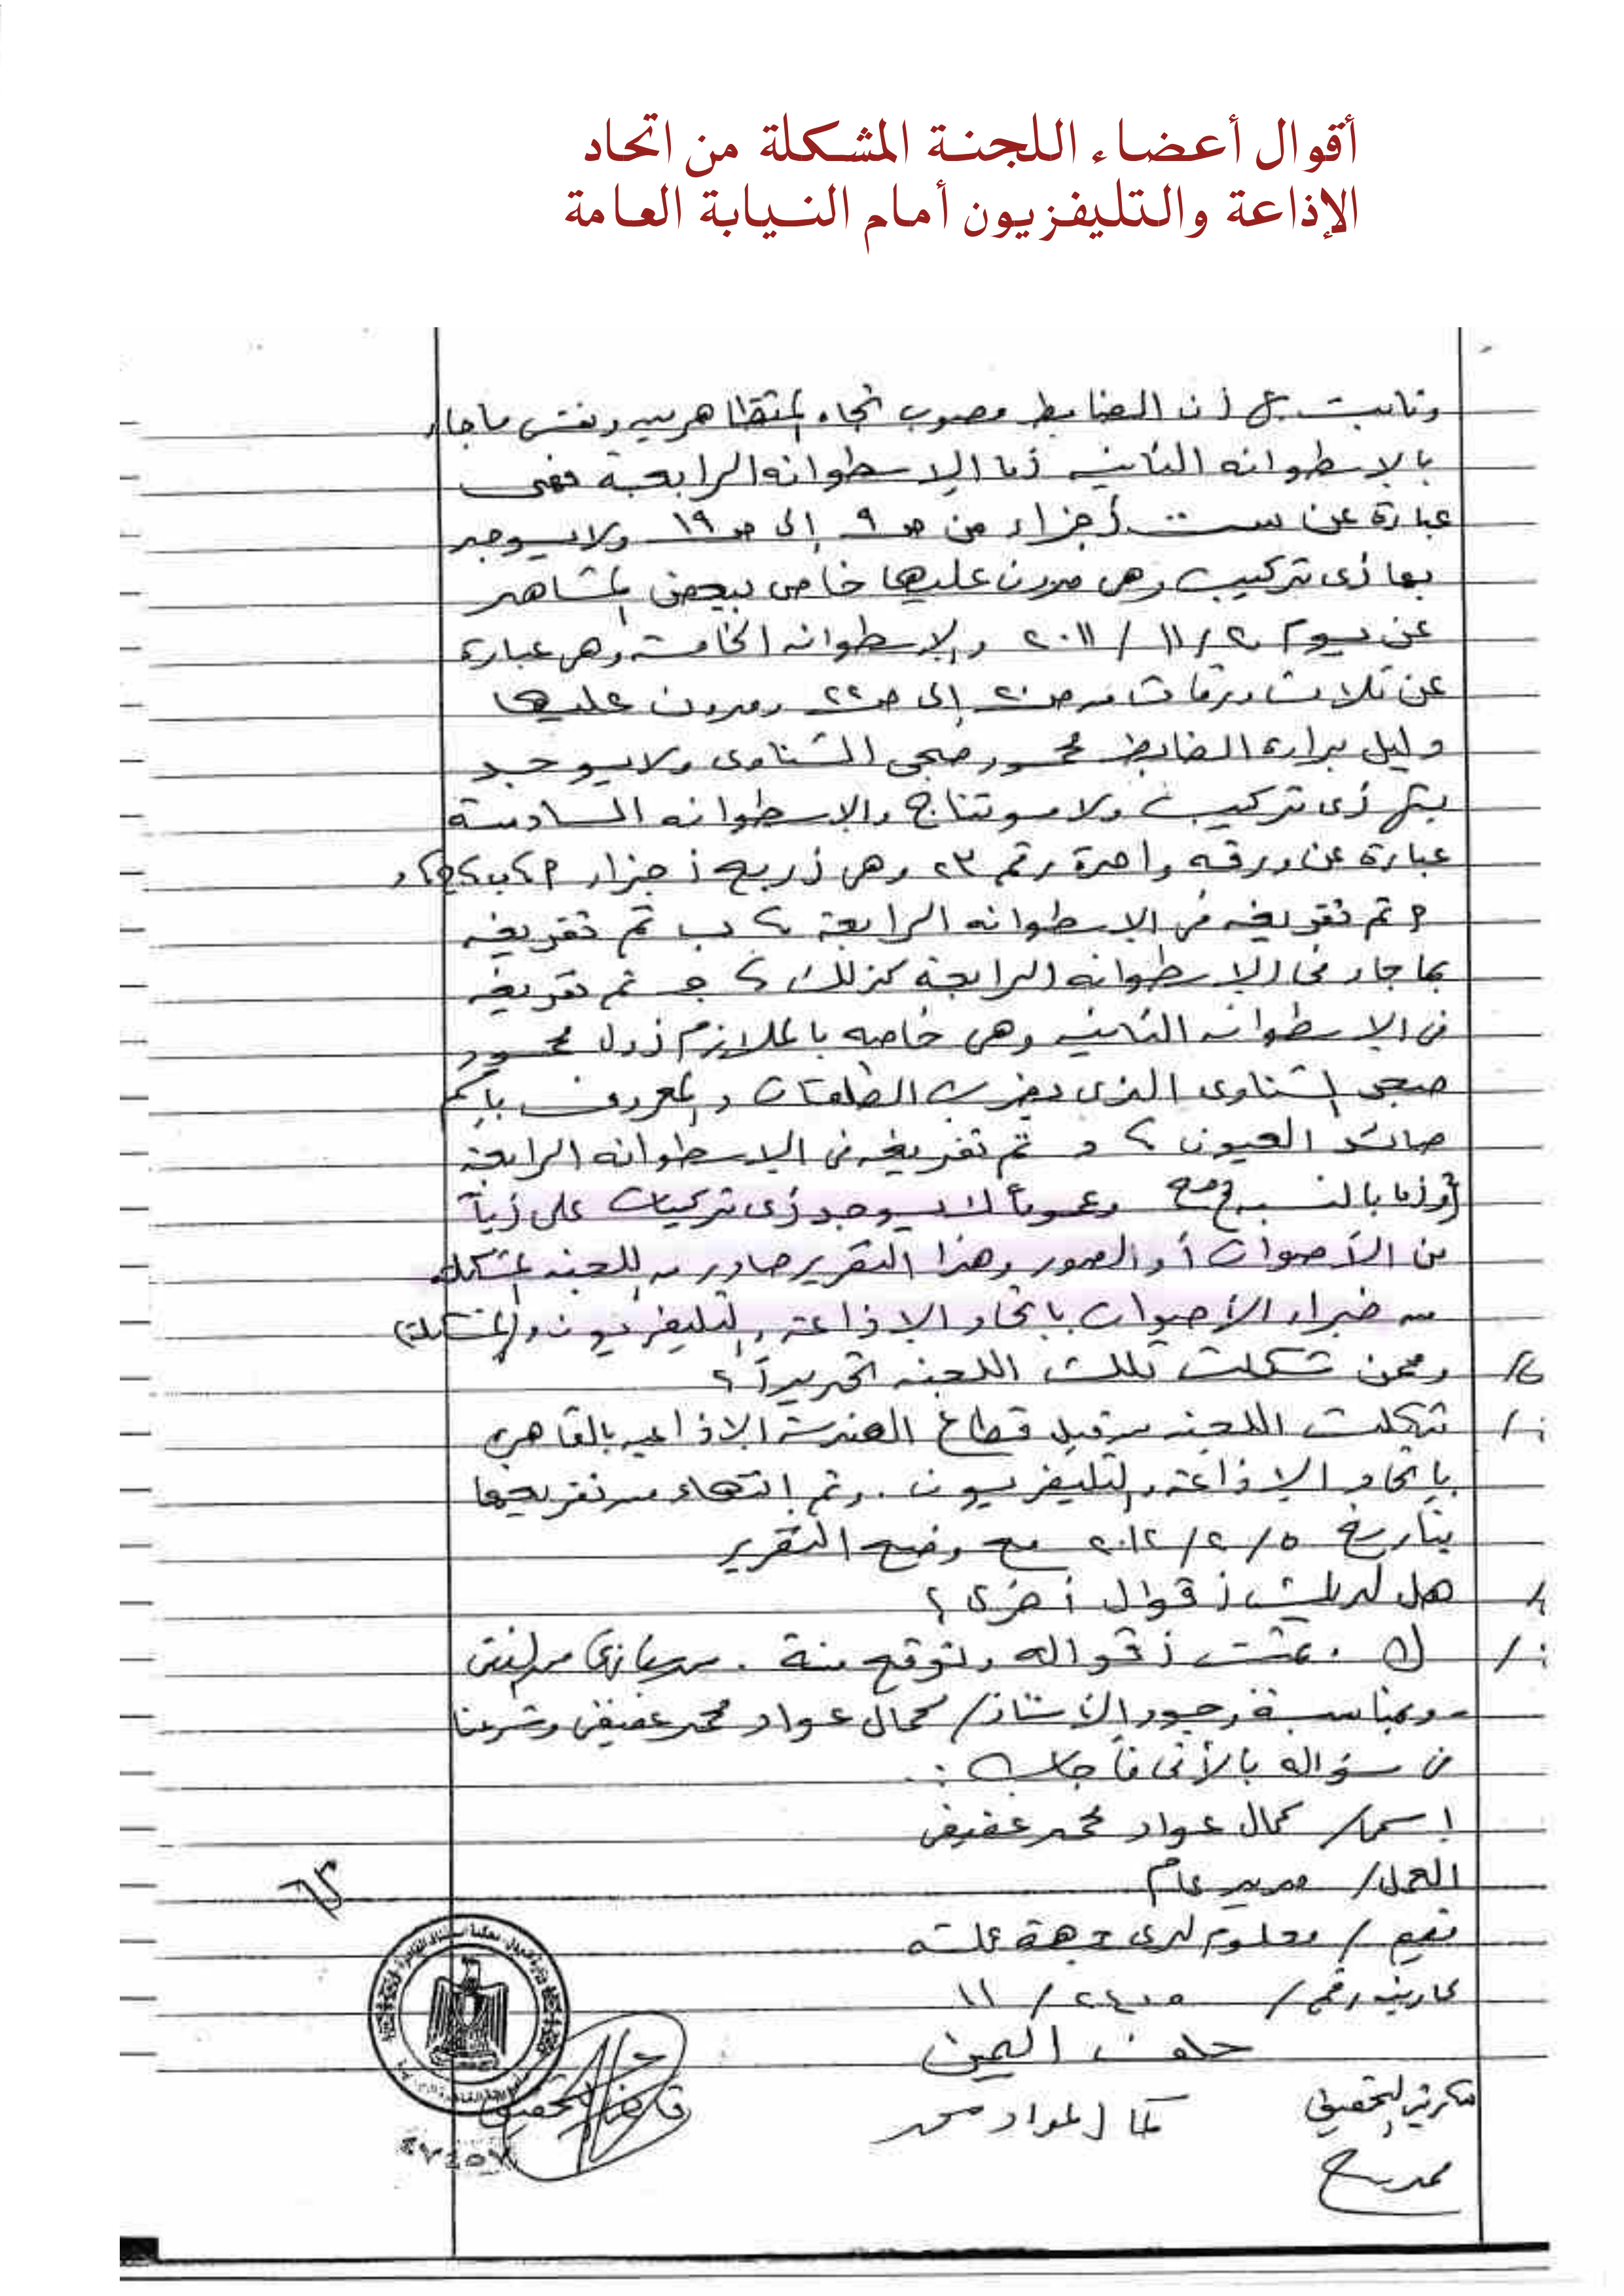 أقوال أعضاء اللجنة المشكلة من اتحاد
الإذاعة والتليفزيون أمام النيابة العامة
وثابت أن الضابط مصوب تجاه المتظاهرين ونفس ما جاء
بالاسطوانه الثانيه أما الاسطوانه الرابعة فهى
عبارة عن ست أجزاء من صـ ٩ إلى صـ ١٩ ولا يوجد
بها أى تركيب وهى مدون عليها خاص ببعض المشاهد
عن يوم ٢٠ / ١١ / ٢٠١١ والاسطوانه الخامسة وهى عبارة
عن ثلاث ورقات من صـ ٢٠ إلى صـ ٢٢ ومدون عليها
دليل براءة الضابط محمود صبحى الشناوى ولا يوجد
بها أى تركيب ولا مونتاج والاسطوانه السادسة
عبارة عن ورقه واحدة رقم ٢٣ وهى أربع أجزاء
تم تفريغه فى الاسطوانه الرابعة ، ب تم تفريغه
بما جاء فى الاسطوانه الرابعة كذلك ، جـ تم تفريغه
فى الاسطوانه الثانيه وهى خاصه بالملازم أول محمود
صبحى الشناوى الذى يضرب الطلقات والمعروف باسم
صائد العيون ، د تم تفريغه فى الاسطوانه الرابعة
وعموماً لا يوجد أى تركيبات على أياً
من الأصوات أو الصور وهذا التقرير صادر من اللجنه المشكله
من خبراء الأصوات باتحاد الاذاعة والتليفزيون
س/ وممن شكلت تلك اللجنه تحديداً ؟
ج/ شكلت اللجنه من قبل قطاع الهندسة الاذاعيه بالقاهره
باتحاد الاذاعة والتليفزيون . وتم انتهاء من تفريغها
بتاريخ ٥ / ٢ / ٢٠١٢ مع وضع التقرير
س/ هل لديك أقوال أخرى ؟
ج/ لا . تمت أقواله وتوقع منه .
- وبمناسبة وجود الأستاذ / كمال عواد محمد عفيفى وشرعنا
فى سؤاله بالأتى فأجاب :
اسمى / كمال عواد محمد عفيفى
العمل / مدير عام
مقيم / معلوم لدى جهة عمله
كارنيه رقم / ٢٤٠٥ / ١١
حلف اليمين
سكرتير التحقيق
كمال عواد محمد